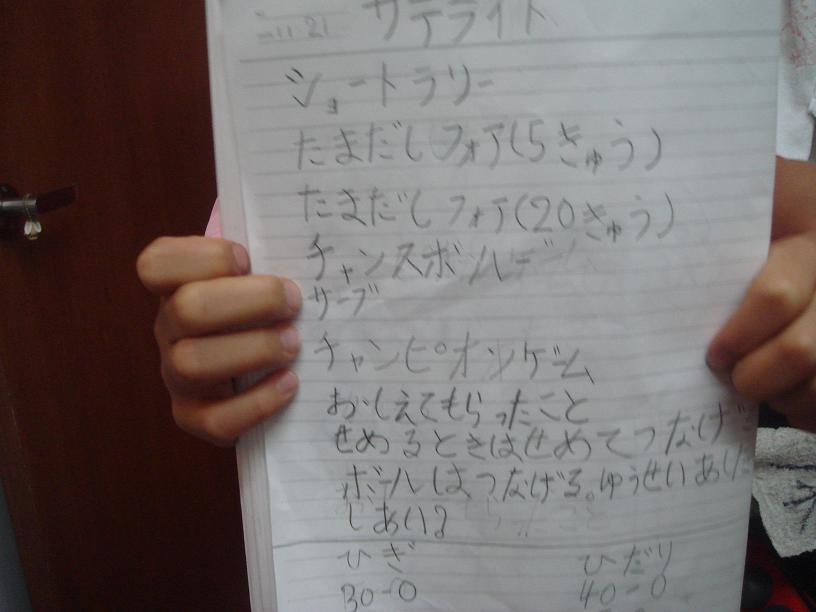 11.21 サテライト
ショートラリー
たまだしフォア(5きゅう)
たまだしフォア(20きゅう)
チャンスボール
サーブ
チャンピオンゲーム
おしえてもらったこと
せめるときはせめてつなげ
ボールはつなげる。ゆうせい
しあい
ひだり
30-0 40-0